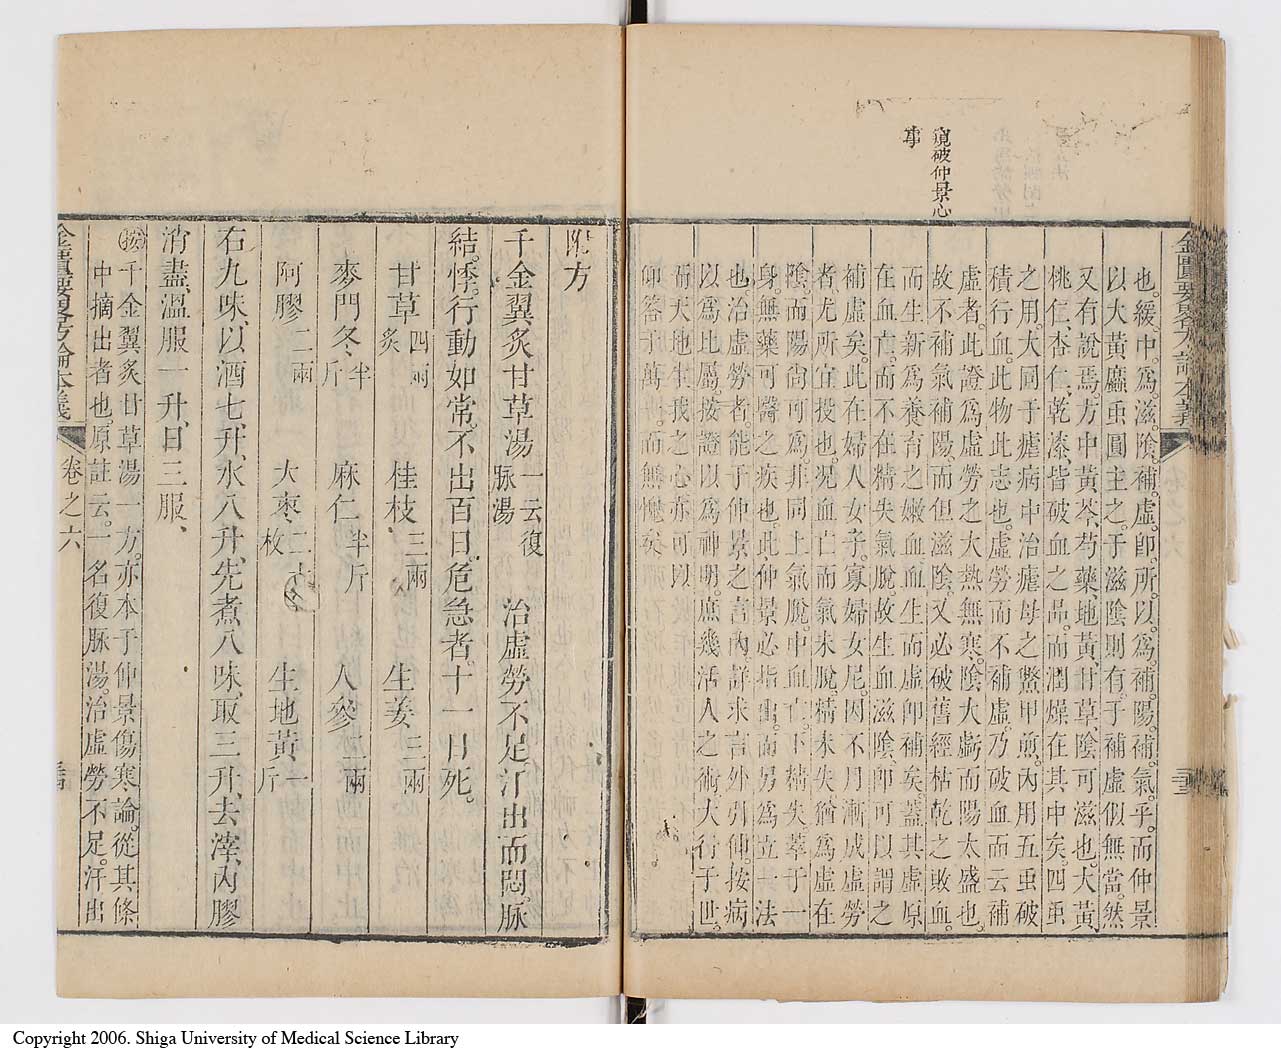 窺破仲景心
事
金匱要略方論本義
也。緩。中。爲。滋。陰。補。虛。卽。所。以。爲。補。陽。補。氣。乎。而仲景
以大黃䗪虫圓主之。于滋陰則有。于補虛似無當。然
又有說焉。方中黃芩、芍藥、地黃、甘草、陰可滋也。大黃、
桃仁、杏仁、乾漆、皆破血之品。而潤燥在其中矣。四虫
之用。大同于瘧病中治瘧母之鱉甲煎。內用五虫破
積行血。此物此志也。虛勞而不補虛。乃破血而云補
虛者。此證爲虛勞之大熱無寒。陰大虧而陽太盛也。
故不補氣補陽。而但滋陰。又必破舊經枯乾之敗血。
而生新爲養育之嫩血。血生而虛卽補矣。蓋其虛原
在血亡。而不在精失氣脫。故生血滋陰。卽可以謂之
補虛矣。此在婦人女子。寡婦女尼。因不月漸成虛勞
者。尤所宜投也。况血亡而氣未脫。精未失。猶爲虛在
陰。而陽尙可爲。非同上氣脫中血亡。下精失。萃于一
身。無藥可醫之疾也。此仲景必指出。而另爲立一法
也。治虛勞者。能于仲景之言內。詳求言外引伸。按病
以爲比屬。按證以爲神明。庶幾活人之術。大行于世。
而天地生我之心。亦可以
仰答于萬一。而無愧矣
附方
千金翼炙甘草湯 一云復脉湯 治虛勞不足。汗出而悶。脉
結。悸。行動如常。不出百日。危急者。十一日死。
甘草 四兩炙 桂枝、三兩 生姜、三兩
麥門冬、半斤 麻仁 半斤 人參、二兩
阿膠 二兩 大棗、二十枚 生地黃 一斤
右九味、以酒七升、水八升、先煮八味、取三升、去滓、內膠
消盡、溫服一升、日三服、
按千金翼炙甘草湯一方。亦本于仲景傷寒論。從其條
中摘出者也。原註云。一名復脉湯。治虛勞不足。汗出
金匱要略方論本義
卷之六
Copyright 2006. Shiga University of Medical Science Library